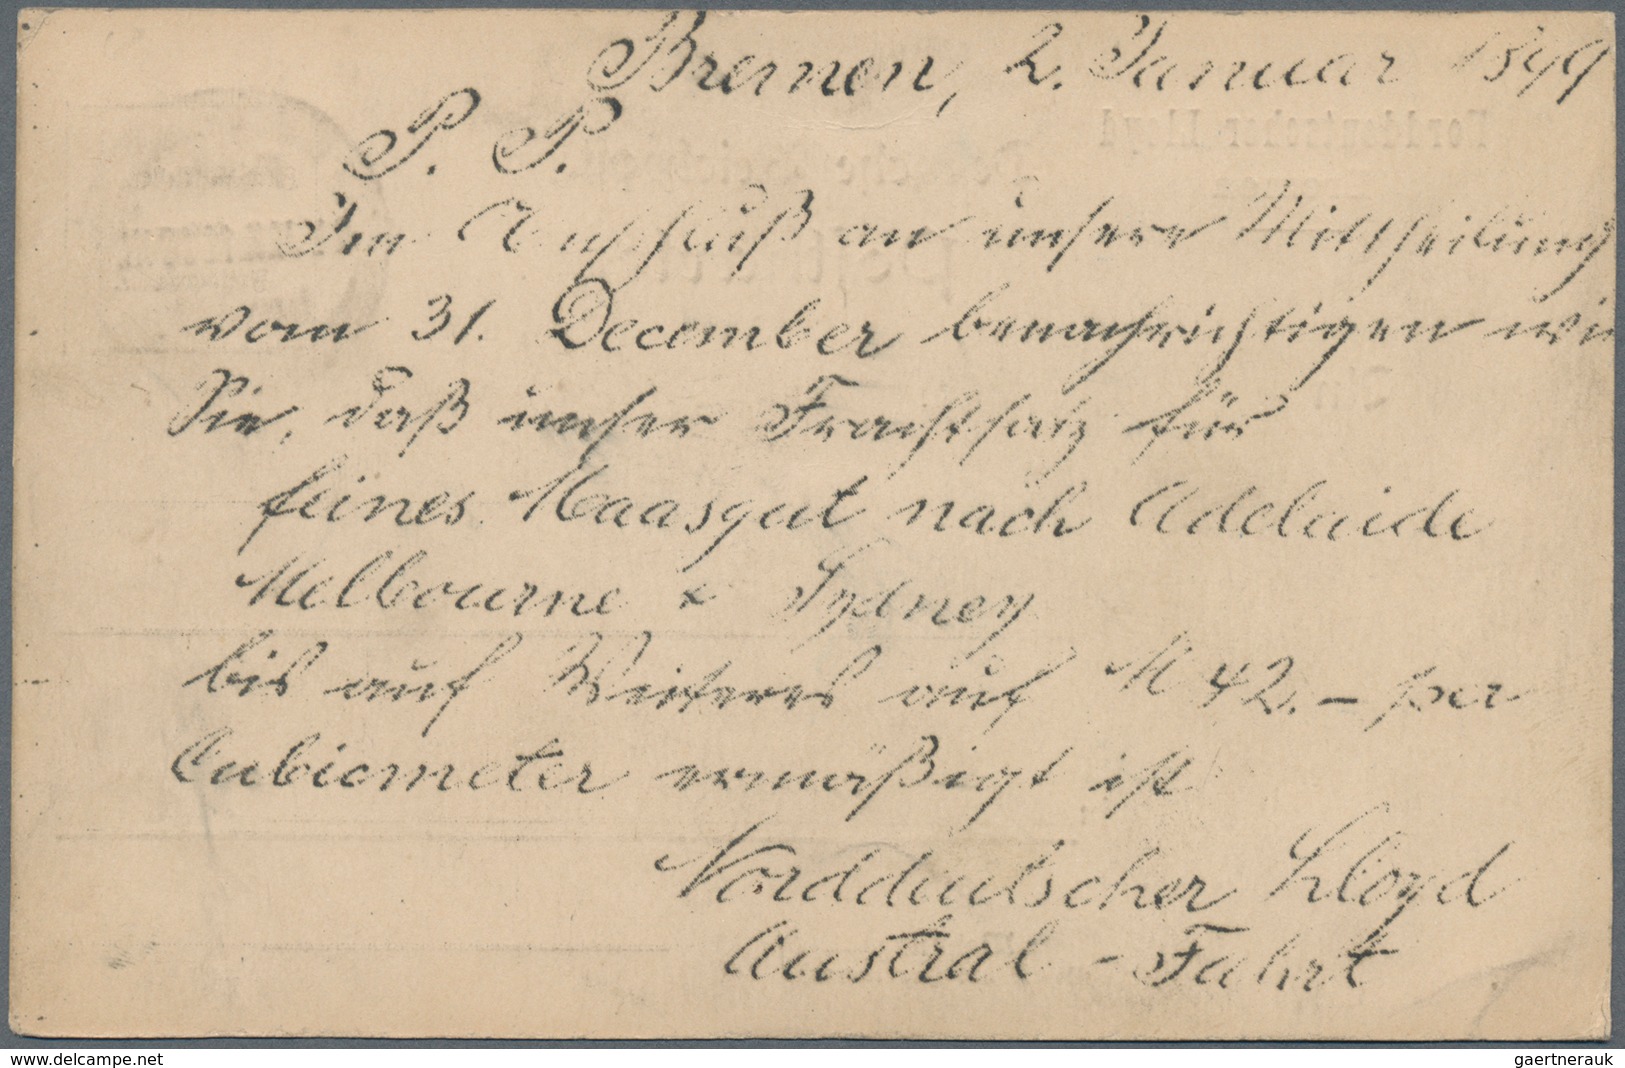 Bremen, 2. Januar 1899
P. P.
Im Anschluß an unsere Mittheilung
vom 31. December benachrichtigen wir
Sie, daß unser Frachtsatz für
feines Maasgut nach Adelaide
Melbourne & Sydney
bis auf Weiteres auf M 42.- per
Cubicmeter ermäßigt ist
Norddeutscher Lloyd
Austral-Fahrt
www.delcampe.net
gaertnerauk